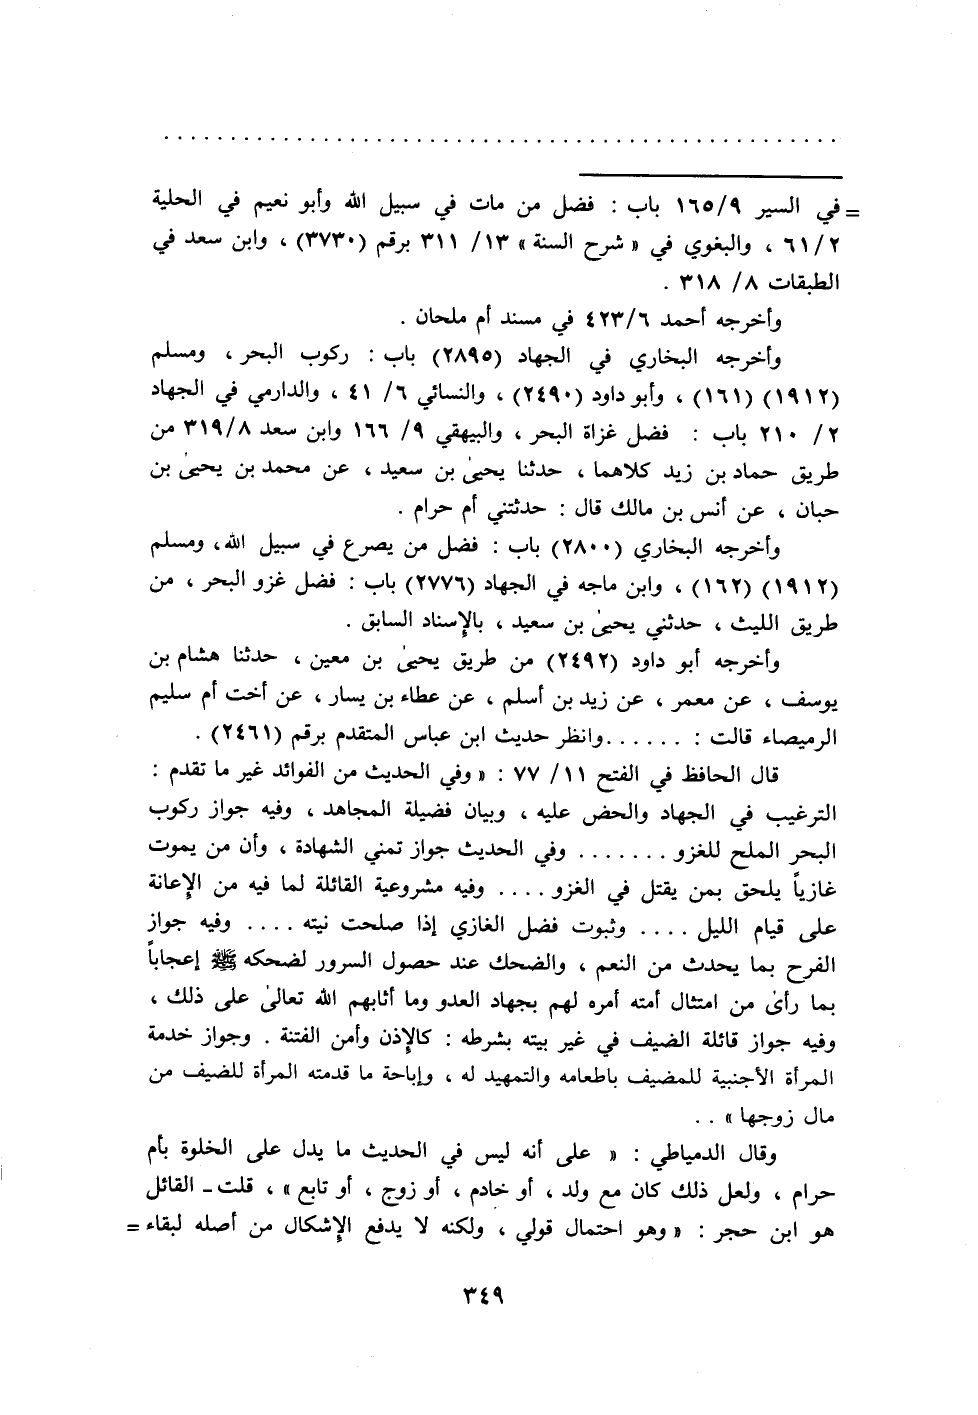 . . . . . . . . . . . . . . . . . . . . . . . . . . . . . . . . . . . . . . . . . . . . . .
= في السير ١٦٥/٩ باب : فضل من مات في سبيل الله وأبو نعيم في الحلية
٦١/٢ ، والبغوي في « شرح السنة » ١٣/ ٣١١ برقم (٣٧٣٠) ، وابن سعد في
الطبقات ٨/ ٣١٨ .
وأخرجه أحمد ٤٢٣/٦ في مسند أم ملحان .
وأخرجه البخاري في الجهاد (٢٨٩٥) باب : ركوب البحر ، ومسلم
(١٩١٢) (١٦١) ، وأبو داود (٢٤٩٠) ، والنسائي ٦/ ٤١ ، والدارمي في الجهاد
٢/ ٢١٠ باب : فضل غزاة البحر ، والبيهقي ٩/ ١٦٦ وابن سعد ٣١٩/٨ من
طريق حماد بن زيد كلاهما ، حدثنا يحيىٰ بن سعيد ، عن محمد بن يحيىٰ بن
حبان ، عن أنس بن مالك قال : حدثتني أم حرام .
وأخرجه البخاري (٢٨٠٠) باب : فضل من يصرع في سبيل الله، ومسلم
(١٩١٢) (١٦٢) ، وابن ماجه في الجهاد (٢٧٧٦) باب : فضل غزو البحر ، من
طريق الليث ، حدثني يحيىٰ بن سعيد ، بالإسناد السابق .
وأخرجه أبو داود (٢٤٩٢) من طريق يحيىٰ بن معين ، حدثنا هشام بن
يوسف ، عن معمر ، عن زيد بن أسلم ، عن عطاء بن يسار ، عن أخت أم سليم
الرميصاء قالت : . . . . . .وانظر حديث ابن عباس المتقدم برقم (٢٤٦١) .
قال الحافظ في الفتح ١١/ ٧٧ : « وفي الحديث من الفوائد غير ما تقدم :
الترغيب في الجهاد والحض عليه ، وبيان فضيلة المجاهد ، وفيه جواز ركوب
البحر الملح للغزو . . . . . . . وفي الحديث جواز تمني الشهادة ، وأن من يموت
غازياً يلحق بمن يقتل في الغزو . . . . وفيه مشروعية القائلة لما فيه من الإعانة
على قيام الليل . . . . وثبوت فضل الغازي إذا صلحت نيته . . . . وفيه جواز
الفرح بما يحدث من النعم ، والضحك عند حصول السرور لضحكه ﷺ إعجاباً
بما رأىٰ من امتثال أمته أمره لهم بجهاد العدو وما أثابهم الله تعالىٰ على ذلك ،
وفيه جواز قائلة الضيف في غير بيته بشرطه : كالإذن وأمن الفتنة . وجواز خدمة
المرأة الأجنبية للمضيف باطعامه والتمهيد له ، وإباحة ما قدمته المرأة للضيف من
مال زوجها » . .
وقال الدمياطي : « على أنه ليس في الحديث ما يدل على الخلوة بأم
حرام ، ولعل ذلك كان مع ولد ، أو خادم ، أو زوج ، أو تابع » ، قلت ـ القائل
هو ابن حجر : « وهو احتمال قولي ، ولكنه لا يدفع الإشكال من أصله لبقاء =
٣٤٩